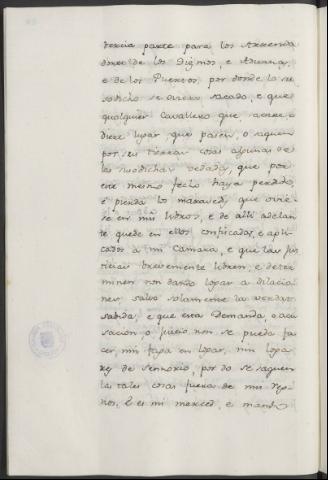 tercia parte para los Arrenda
dores de los Diezmos, e Aduanas,
e de los Puertos, por donde lo su
sodicho se oviere sacado, e que
qualquier Cavallero que acorre o
diere lugar que pasen, o saquen
por su tierra cosas algunas de
las susodichas vedadas, que por
ese mesmo fecho haya perdido,
e pierda los maravedis que oviere
se en mis libros, e de alli adelan
te quede en ellos confiscados, e apli
cados a mi Camara, e que las jus
ticias brevemente libren, e deter
minen non dando logar a dilacio
nes, salvo solamente la verdad
sabida, e que esta Demanda, o acu
sacion, o juicio non se pueda fa
cer, nin faga en logar, nin loga
res de Señorio, por do se saquen
las tales cosas fuera de mis Rey
nos, E es mi merced, e mando